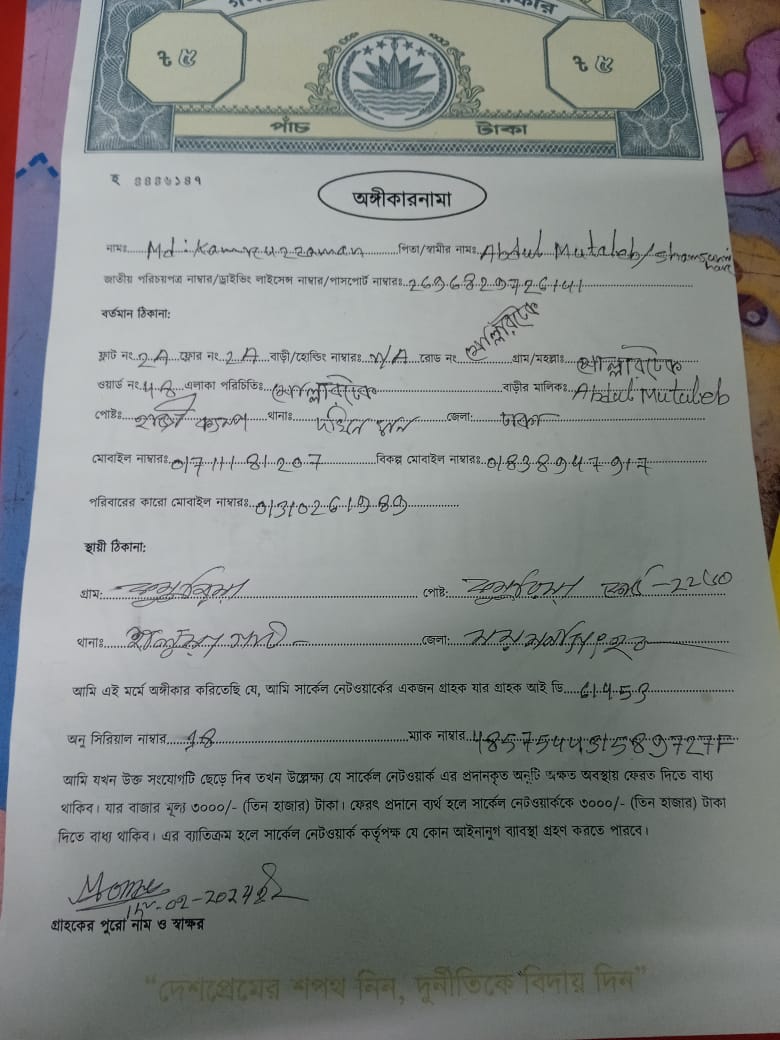 ৳ ৫ ৳ ৫
পাঁচ টাকা
ষ ৪৪৪৬১৪৭
অঙ্গীকারনামা
নামঃ Md: Kamruzzaman পিতা/স্বামীর নামঃ Abdul Mutaleb/
জাতীয় পরিচয়পত্র নাম্বার/ড্রাইভিং লাইসেন্স নাম্বার/পাসপোর্ট নাম্বারঃ 2696829726141
বর্তমান ঠিকানা:
ফ্লাট নং. 2A ফ্লোর নং. 2A বাড়ী/হোল্ডিং নাম্বারঃ N/A রোড নং. মোল্লারটেক গ্রাম/মহল্লাঃ মোল্লারটেক
ওয়ার্ড নং. 48 এলাকা পরিচিতিঃ মোল্লারটেক বাড়ীর মালিকঃ Abdul Mutaleb
পোষ্টঃ হাজী ক্যাম্প থানাঃ দক্ষিন খান জেলা: ঢাকা
মোবাইল নাম্বারঃ 01711181207 বিকল্প মোবাইল নাম্বারঃ 01838947917
পরিবারের কারো মোবাইল নাম্বারঃ 01310261989
স্থায়ী ঠিকানা:
গ্রাম: পোষ্ট: কোর্ড-
থানাঃ জেলা: ময়মনসিংহ
আমি এই মর্মে অঙ্গীকার করিতেছি যে, আমি সার্কেল নেটওয়ার্কের একজন গ্রাহক যার গ্রাহক আই ডি 61453
অনু সিরিয়াল নাম্বার 18 ম্যাক নাম্বার
আমি যখন উক্ত সংযোগটি ছেড়ে দিব তখন উল্লেক্ষ্য যে সার্কেল নেটওয়ার্ক এর প্রদানকৃত অনুটি অক্ষত অবস্থায় ফেরত দিতে বাধ্য
থাকিব। যার বাজার মূল্য ৩০০০/- (তিন হাজার) টাকা। ফেরৎ প্রদানে ব্যর্থ হলে সার্কেল নেটওয়ার্ককে ৩০০০/- (তিন হাজার) টাকা
দিতে বাধ্য থাকিব। এর ব্যতিক্রম হলে সার্কেল নেটওয়ার্ক কর্তৃপক্ষ যে কোন আইনানুগ ব্যাবস্থা গ্রহণ করতে পারবে।
-02-2024
গ্রাহকের পুরো নাম ও স্বাক্ষর
“দেশপ্রেমের শপথ নিন, দুর্নীতিকে বিদায় দিন”